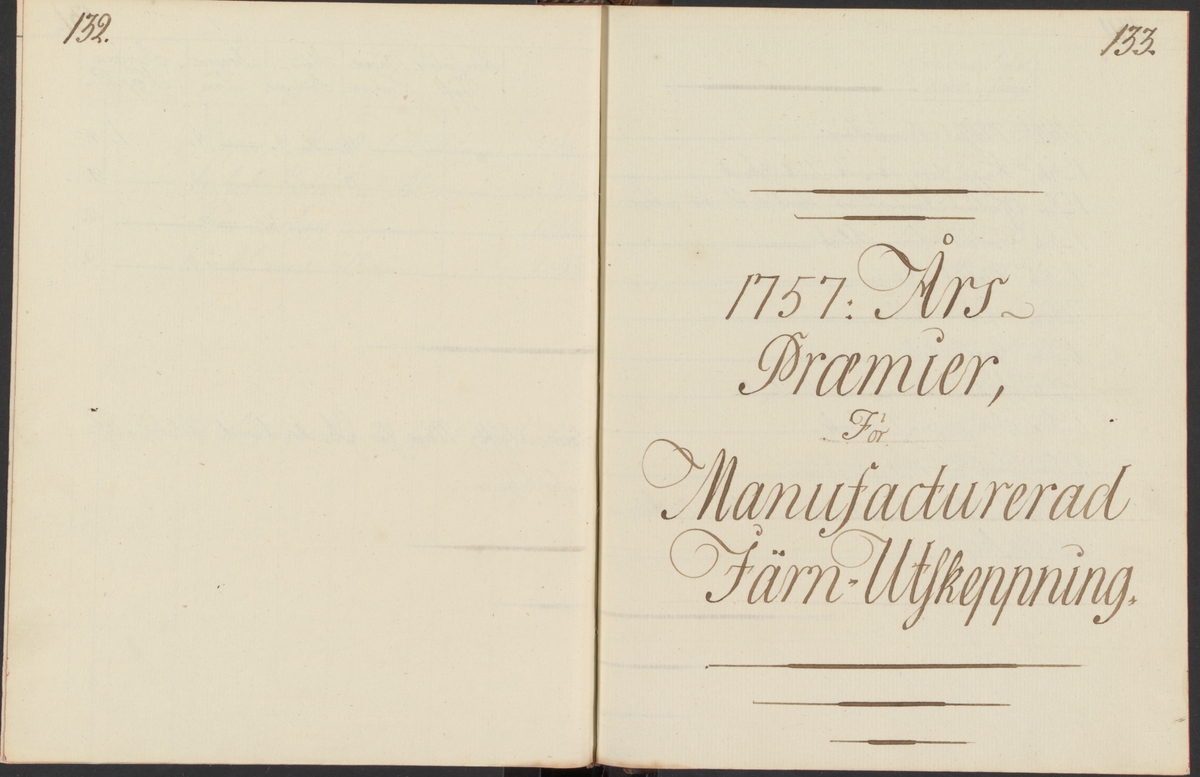 132.
133.
1757: Års-
Præmier,
För
Manufacturerad
Järn-Utskeppning.